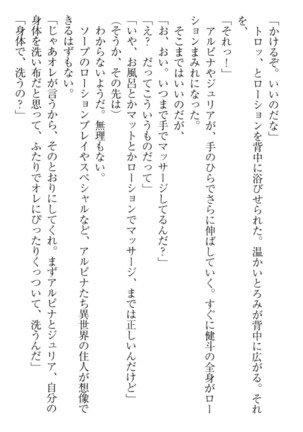 「かけるぞ。いいのだな」
　トロッ、とローションを背中に浴びせられた。温かいとろみが背中に広がる。それ
を、
「それっ！」
　アルビナやジュリアが、手のひらでさらに伸ばしていく。すぐに健斗の全身がロー
ションまみれになった。
　そこまではいいのだが、
「お、おい。いつまで手でマッサージしてるんだ？」
「え？　だってこういうものだって」
「いや、お風呂とかマットとかローションでマッサージ、までは正しいんだけど」
（そうか、その先は）
　わからないようだ。無理もない。
　ソープのローションプレイやスペシャルなど、アルビナたち異世界の住人が想像で
きるはずもない。
「じゃあオレが言うから、そのとおりにしてくれ。まずアルビナとジュリア、自分の
身体を洗い布だと思って、ふたりでオレにぴったりくっついて、洗うんだ」
「身体で、洗うの？」